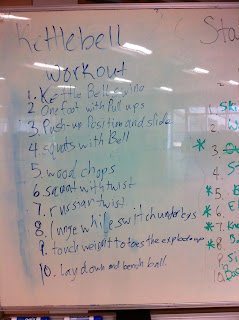 Kettlebell
workout
1. Kettle Bell swing
2 One foot with Pull ups
3. Push-up Position and slide
4. squats with Bell
5. wood chops
6. squat with twist
7. russian twist
8. lunge while switch underbys
9. touch weight to toes the explode up
10. lay down and bench ball.
Sta
1 Ski
2
* 3.
4 S
* 5. E
* 6. El
* 7. Kne
* 8
9
10